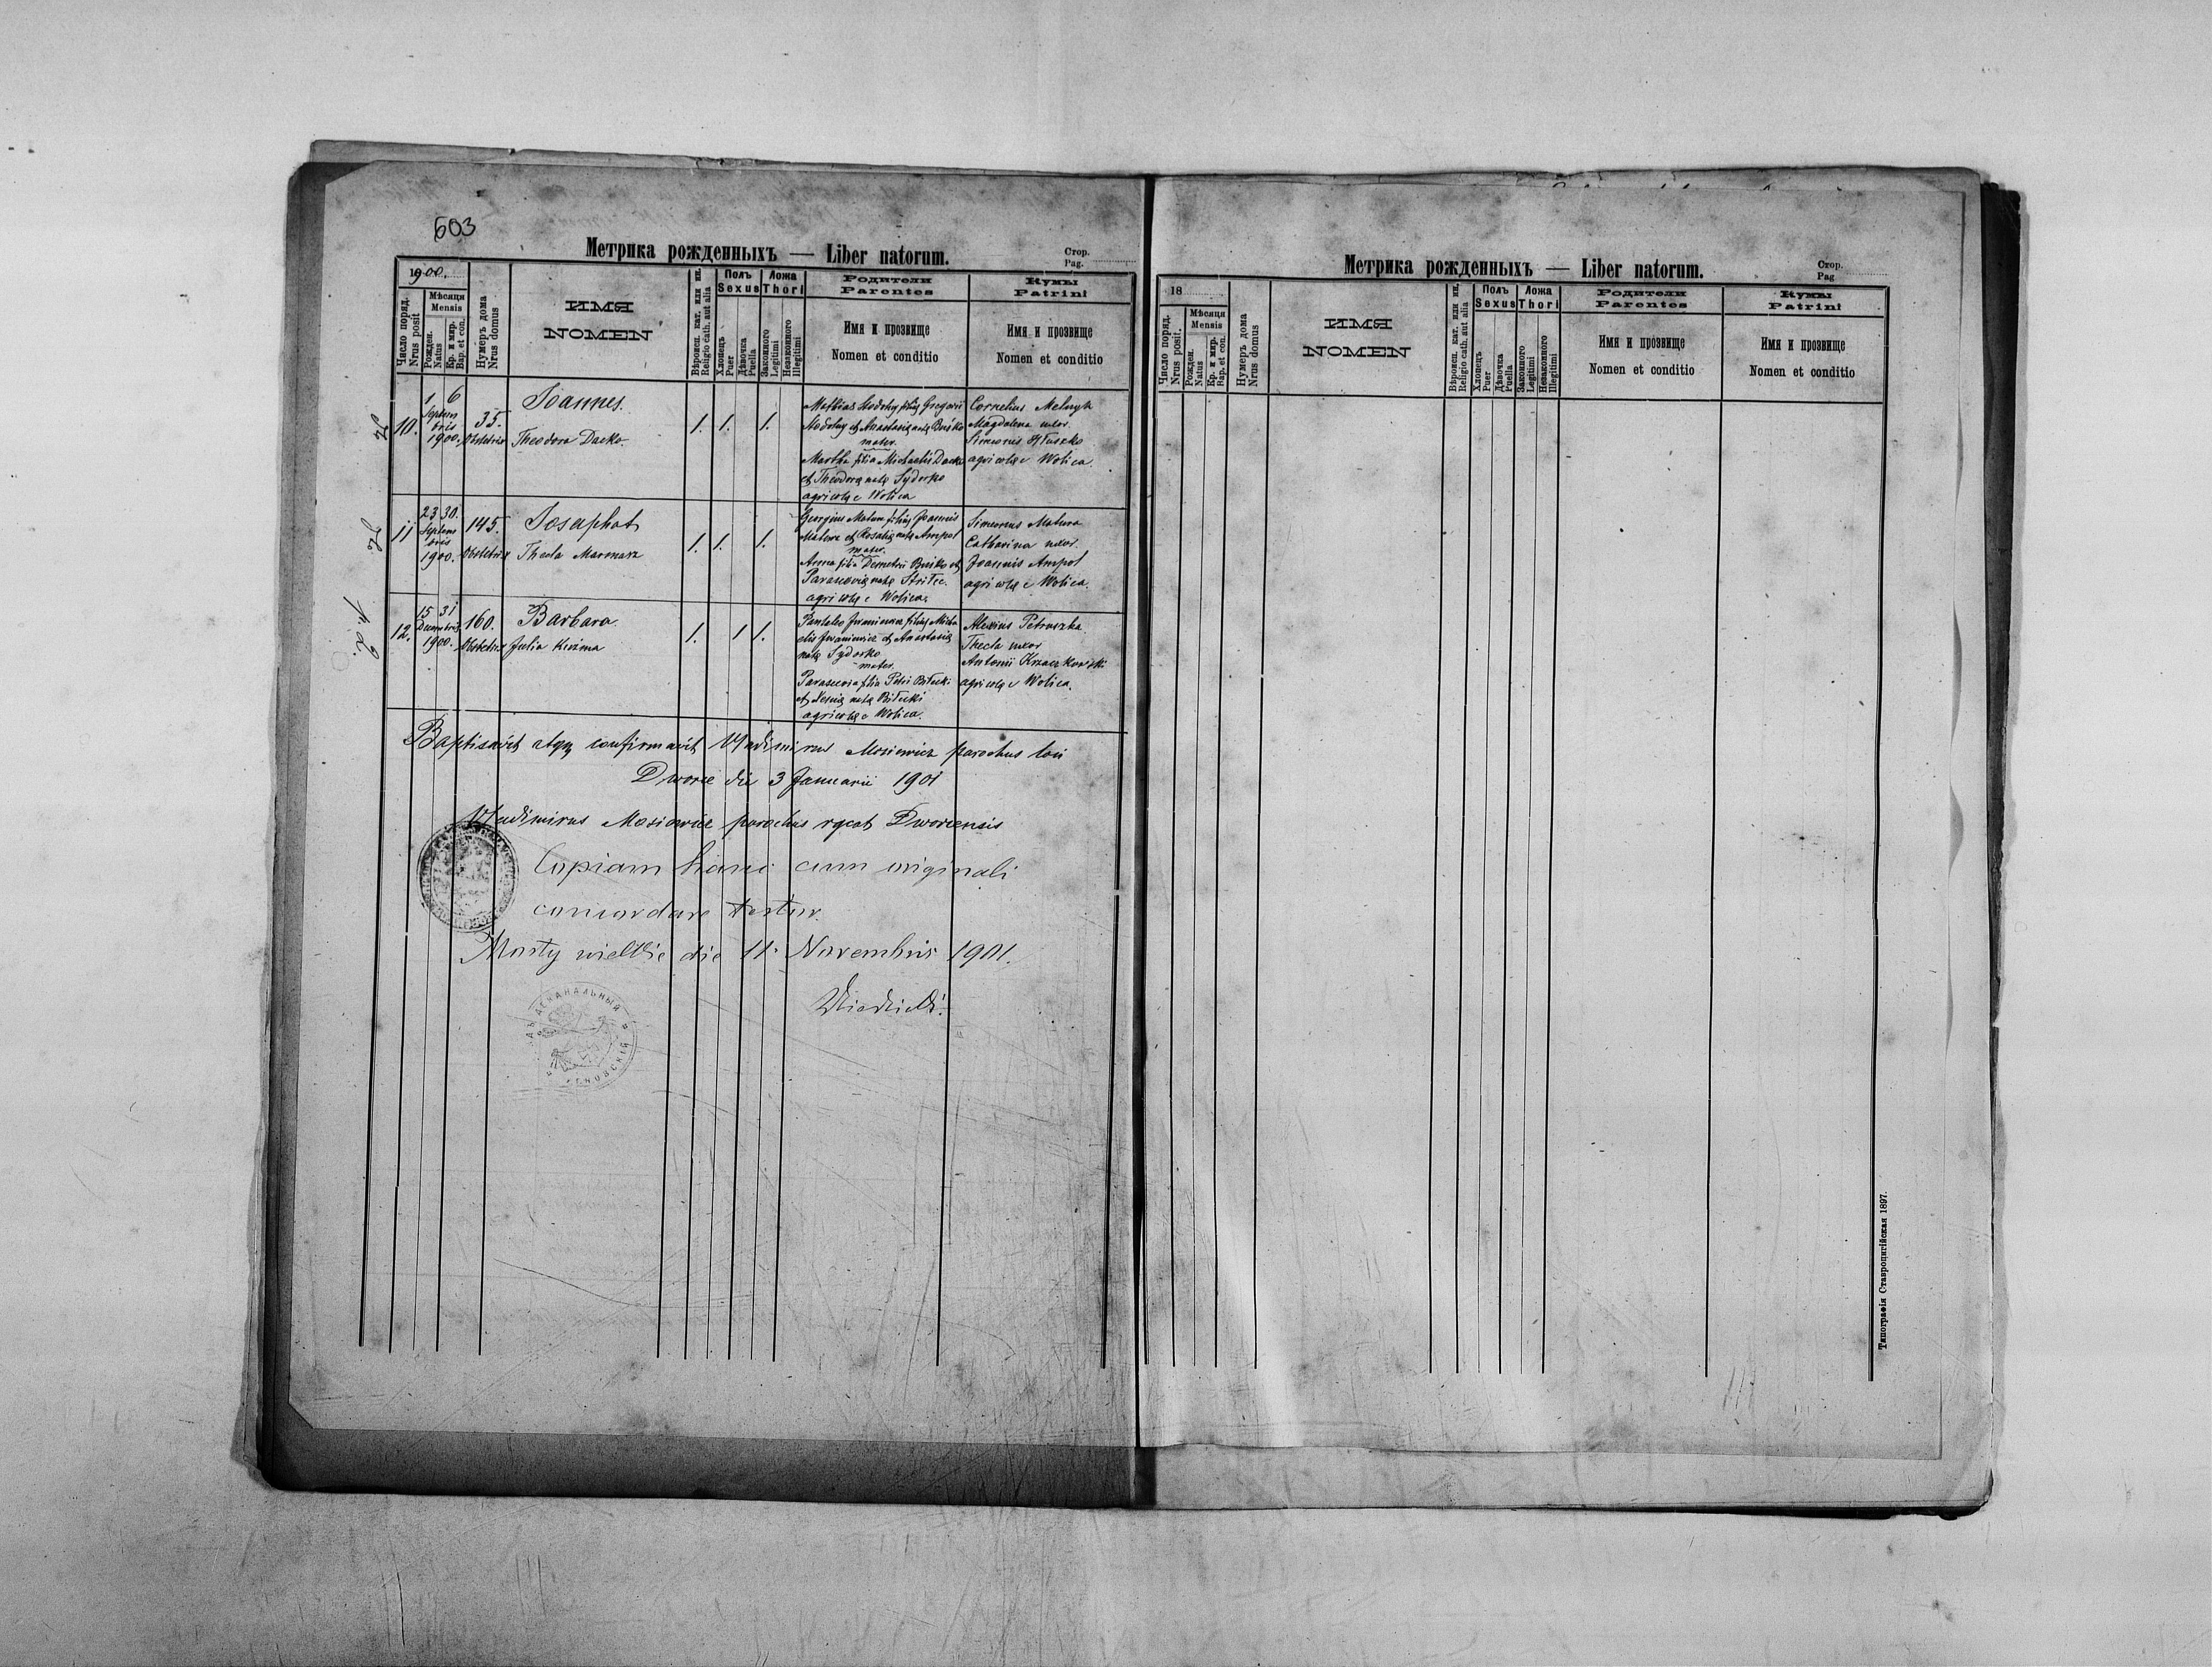 603
Метрика рожденныхъ — Liber natorum.
Стор.
Pag.
1900.
Число поряд.
Nrus posit
Мѣсяця
Mensis
Рожден.
Natus
Кр. и мир.
Bap. et con.
Нумеръ дома
Nrus domus
ИМЯ
NOMEN
Вѣроисп. кат. или ин.
Religio cath. aut alia
Полъ
Sexus
Хлопецъ
Puer
Дѣвочка
Puella
Ложа
Thori
Законного
Legitimi
Незаконного
Illegitimi
Родители
Parentes
Имя и прозвище
Nomen et conditio
Кумы
Patrini
Имя и прозвище
Nomen et conditio
10.
1. 6
Septem
bris
1900.
35.
Obstetrix
Joannes.
Theodora Dacko.
1. 1. 1.
Mathias filius Gregorii
et Anastasiae natae Buśko
mater.
Martha filia Michaelis Dacko
et Theodorae natae Sydorko
agricolae e Wolica
Cornelius Melnyk
Magdalena uxor
Simeonis
agricolae e Wolica.
11
23 30.
Septem
bris
1900.
145.
Obstetrix
Josaphat
Thecla Marmasz
1. 1. 1.
Georgius Matwa filius Joannis
Matwa et Rosaliae natae Ampol
mater.
Anna filia Demetrii Buśko et
Parasceviae natae Strilec.
agricolae e Wolica.
Simeonus Matwa
Catharina uxor.
Joannis Ampol
agricolae e Wolica.
12.
15 31
Decembris
1900.
160.
Obstetrix
Barbara
Julia Kuźma
1. 1 1.
Pantaleo Iwaniewicz filius Micha
elis Iwaniewicz et Anastasiae
natae Sydorko
mater.
Parascevia filia Petri Biłecki
et natae Biłecki
agricolae e Wolica.
Alexius Petruszka
Thecla uxor
Antonii Krzaczkowski
agricolae e Wolica.
Baptisavit atque confirmavit Wladimirus Mosiewicz parochus loci
Dworce die 3 Januarii 1901
Wladimirus Mosiewicz parochus rgcat Dworcensis
Copiam hanc cum originali
concordare testor.
Mosty wielkie die 11. Novembris 1901.
ДЕКАНАЛЬНЫЙ
Метрика рожденныхъ — Liber natorum.
Стор.
Pag
18
Число поряд.
Nrus posit.
Мѣсяця
Mensis
Рожден.
Natus
Кр. и мир.
Bap. et con.
Нумеръ дома
Nrus domus
ИМЯ
NOMEN
Вѣроисп. кат. или ин.
Religio cath. aut alia
Полъ
Sexus
Хлопецъ
Puer
Дѣвочка
Puella
Ложа
Thori
Законного
Legitimi
Незаконного
Illegitimi
Родители
Parentes
Имя и прозвище
Nomen et conditio
Кумы
Patrini
Имя и прозвище
Nomen et conditio
Типографія Ставропигійская 1897.